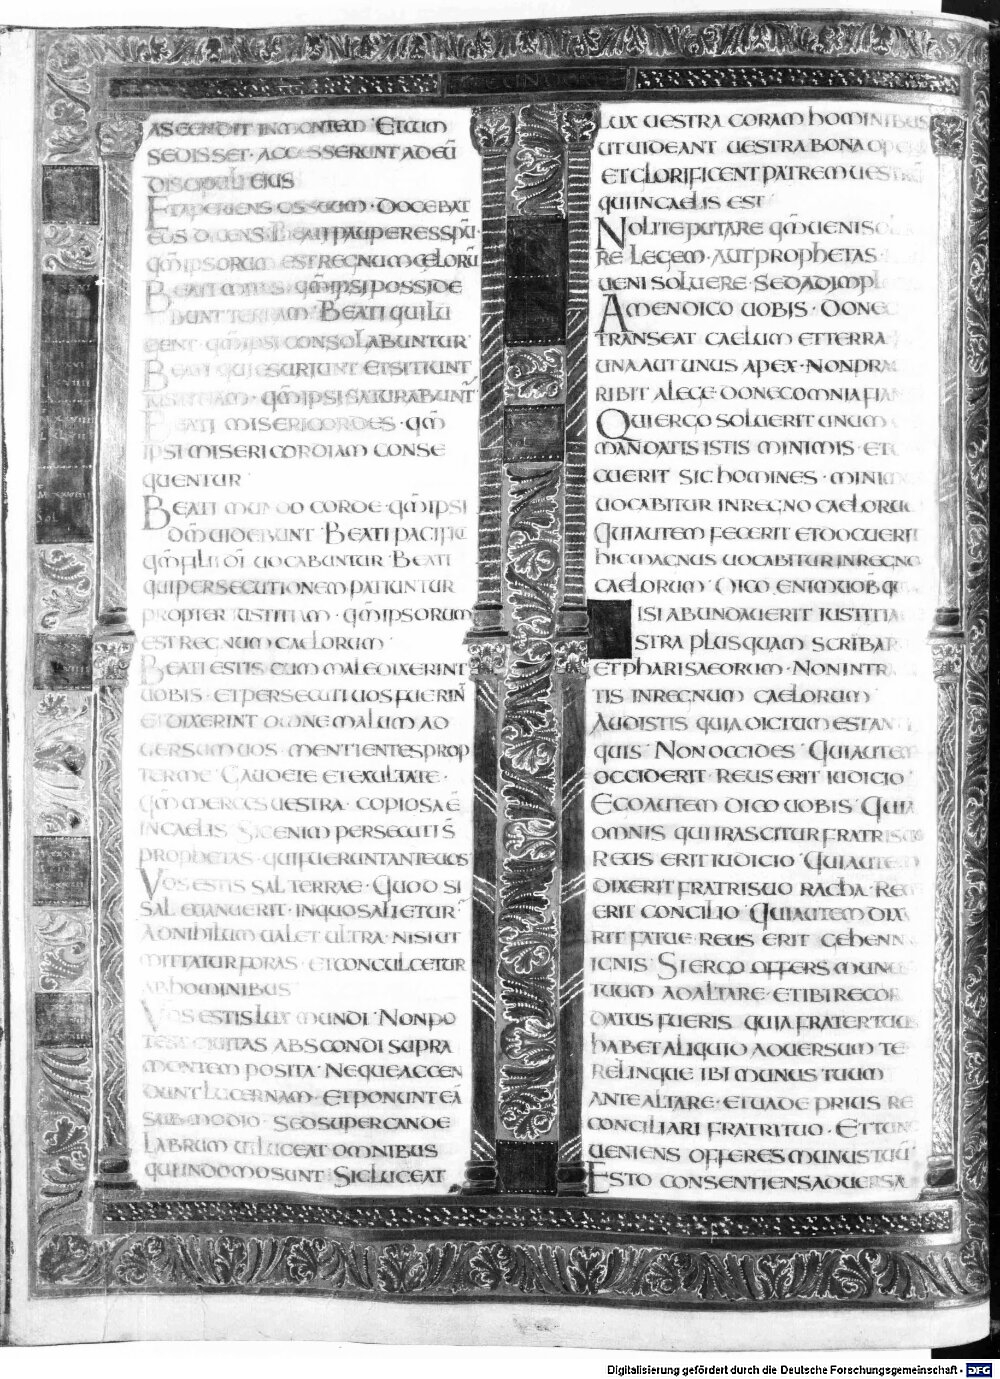 ASCENDIT INMONTEM· ETCUM
SEDISSET· ACCESSERUNT ADEŪ
DISCIPULI EIUS
ETAPERIENS OS SUUM· DOCEBAT
EOS DICENS· BEATI PAUPERES SPŪ·
QM̄ IPSORUM EST REGNUM CAELORŪ
BEATI MITES· QM̄ IPSI POSSIDE
BUNT TERRAM· BEATI QUI LU
GENT QM̄ IPSI CONSOLABUNTUR·
BEATI QUI ESURIUNT ETSITIUNT
IUSTITIAM· QM̄ IPSI SATURABUNT̄
BEATI MISERICORDES· QM̄
IPSI MISERICORDIAM CONSE
QUENTUR·
BEATI MUNDO CORDE· QM̄ IPSI
DM̄ UIDEBUNT· BEATI PACIFICI
QM̄ FILII DĪ UOCABUNTUR· BEATI
QUI PERSECUTIONEM PATIUNTUR
PROPTER IUSTITIAM· QM̄ IPSORUM
EST REGNUM CAELORUM·
BEATI ESTIS CUM MALEDIXERINT
UOBIS· ET PERSECUTI UOS FUERIN̄
ET DIXERINT OMNE MALUM AD
UERSUM UOS· MENTIENTES PROP
TER ME· GAUDETE ET EXULTATE·
QM̄ MERCES UESTRA· COPIOSA Ē
IN CAELIS· SIC ENIM PERSECUTI S̄
PROPHETAS· QUI FUERUNT ANTE UOS
VOS ESTIS SAL TERRAE· QUOD SI
SAL EUANUERIT· IN QUO SALIETUR·
AD NIHILUM UALET ULTRA· NISI UT
MITTATUR FORAS· ET CONCULCETUR
AB HOMINIBUS
VOS ESTIS LUX MUNDI· NON PO
TEST CIUITAS ABSCONDI SUPRA
MONTEM POSITA· NEQUE ACCEN
DUNT LUCERNAM· ET PONUNT EĀ
SUB MODIO· SED SUPER CANDE
LABRUM UT LUCEAT OMNIBUS
QUI IN DOMO SUNT· SIC LUCEAT
LUX UESTRA CORAM HOMINIBUS
UT UIDEANT UESTRA BONA
ET GLORIFICENT PATREM
QUI IN CAELIS EST
NOLITE PUTARE QM̄ UENI
RE LEGEM· AUT PROPHETAS·
UENI SOLUERE· SED ADIMPL
AMEN DICO UOBIS· DONEC
TRANSEAT CAELUM ET TERRA·
UNA AUT UNUS APEX· NON PRAE
RIBIT A LEGE· DONEC OMNIA FIAN
QUI ERGO SOLUERIT UNUM
MANDATIS ISTIS MINIMIS· ET
CUERIT SIC HOMINES· MINIM
UOCABITUR IN REGNO CAELORU
QUI AUTEM FECERIT ET DOCUERIT
HIC MAGNUS UOCABITUR IN REGNO
CAELORUM· DICO ENIM UOB̄ QI
ISI ABUNDAUERIT IUSTITIA
STRA PLUS QUAM SCRIBAR
ET PHARISAEORUM· NON INTR
TIS IN REGNUM CAELORUM
AUDISTIS QUIA DICTUM EST AN
QUIS· NON OCCIDES· QUI AUTEM
OCCIDERIT· REUS ERIT IUDICIO·
EGO AUTEM DICO UOBIS· QUIA
OMNIS QUI IRASCITUR FRATRI SUO
REUS ERIT IUDICIO· QUI AUTEM
DIXERIT FRATRI SUO RACHA· RE
ERIT CONCILIO· QUI AUTEM DIX
RIT FATUE· REUS ERIT GEHENN
IGNIS· SI ERGO OFFERS MUNU
TUUM AD ALTARE· ET IBI RECOR
DATUS FUERIS QUIA FRATER TUUS
HABET ALIQUID ADUERSUM TE·
RELINQUE IBI MUNUS TUUM
ANTE ALTARE· ET UADE PRIUS RE
CONCILIARI FRATRI TUO· ET TUNC
UENIENS OFFERES MUNUS TUŪ·
ESTO CONSENTIENS ADUERSA
Digitalisierung gefördert durch die Deutsche Forschungsgemeinschaft - DFG